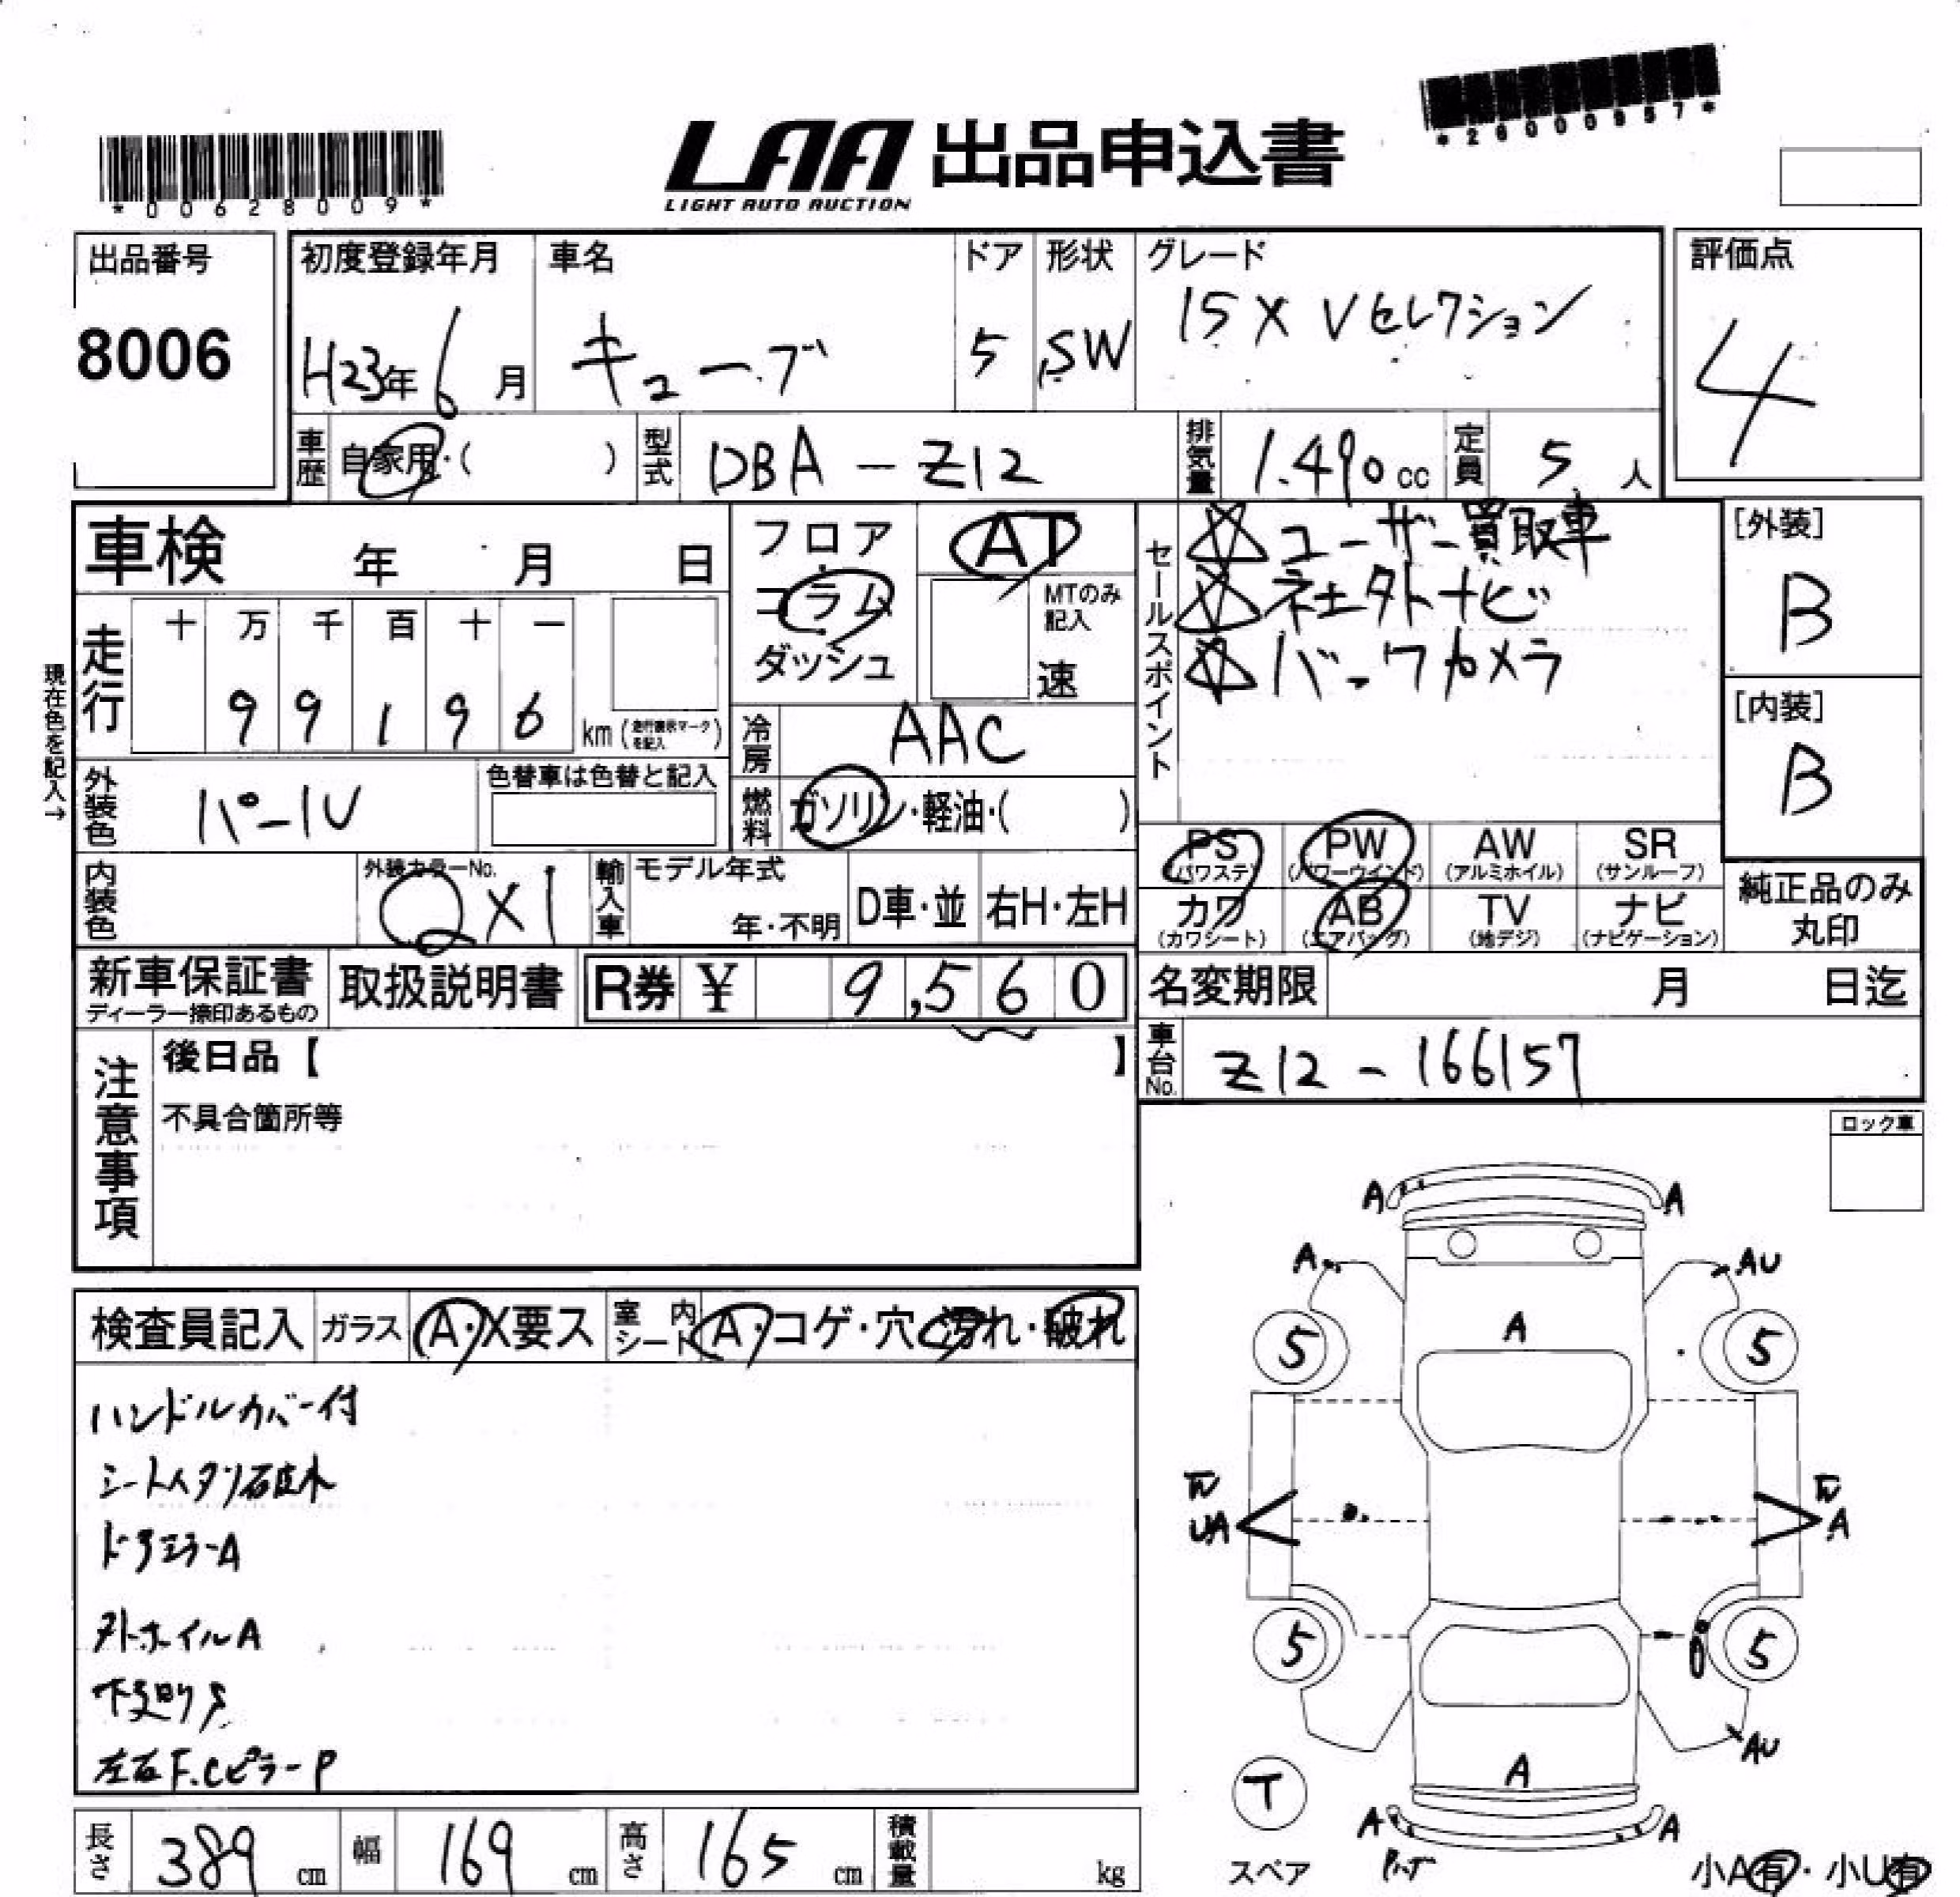 *00628009*
LAA 出品申込書
LIGHT AUTO AUCTION
*26000957*
出品番号
8006
初度登録年月
H23年 6月
車名
キューブ
ドア
5
形状
SW
グレード
15X Vセレクション
評価点
4
車歴 自家用・( )
型式 DBA-Z12
排気量 1.490cc
定員 5人
車検 年 月 日
フロア
コラム
ダッシュ
AT
MTのみ記入
速
走行
十 万 千 百 十 一
9 9 1 9 6
km (走行表示マークを記入)
現在色を記入→
冷房 AAC
外装色 パール
色替車は色替と記入
燃料 ガソリン・軽油・( )
内装色
外装カラーNo.
QX1
輸入車
モデル年式
年・不明
D車・並
右H・左H
セールスポイント
☆ユーザー買取車
☆社外ナビ
☆バックカメラ
[外装]
B
[内装]
B
PS (パワステ)
PW (パワーウインド)
AW (アルミホイル)
SR (サンルーフ)
カワ (カワシート)
AB (エアバッグ)
TV (地デジ)
ナビ (ナビゲーション)
純正品のみ
丸印
新車保証書
ディーラー捺印あるもの
取扱説明書
R券 ¥ 9,560
名変期限 月 日迄
車台No. Z12-166157
注意事項
後日品【 】
不具合箇所等
ロック車
検査員記入
ガラス A・X要ス
室内シート A・コゲ・穴・汚れ・破れ
ハンドルカバー付
シートイタソ破れ
ドアミラーA
外ホイルA
下廻りS
左右F.CピラーP
A A
A AU
5 A 5
UA A
5 5
AU
A
T
スペア
A A
小A有・小U有
長さ 389cm
幅 169cm
高さ 165cm
積載量 kg